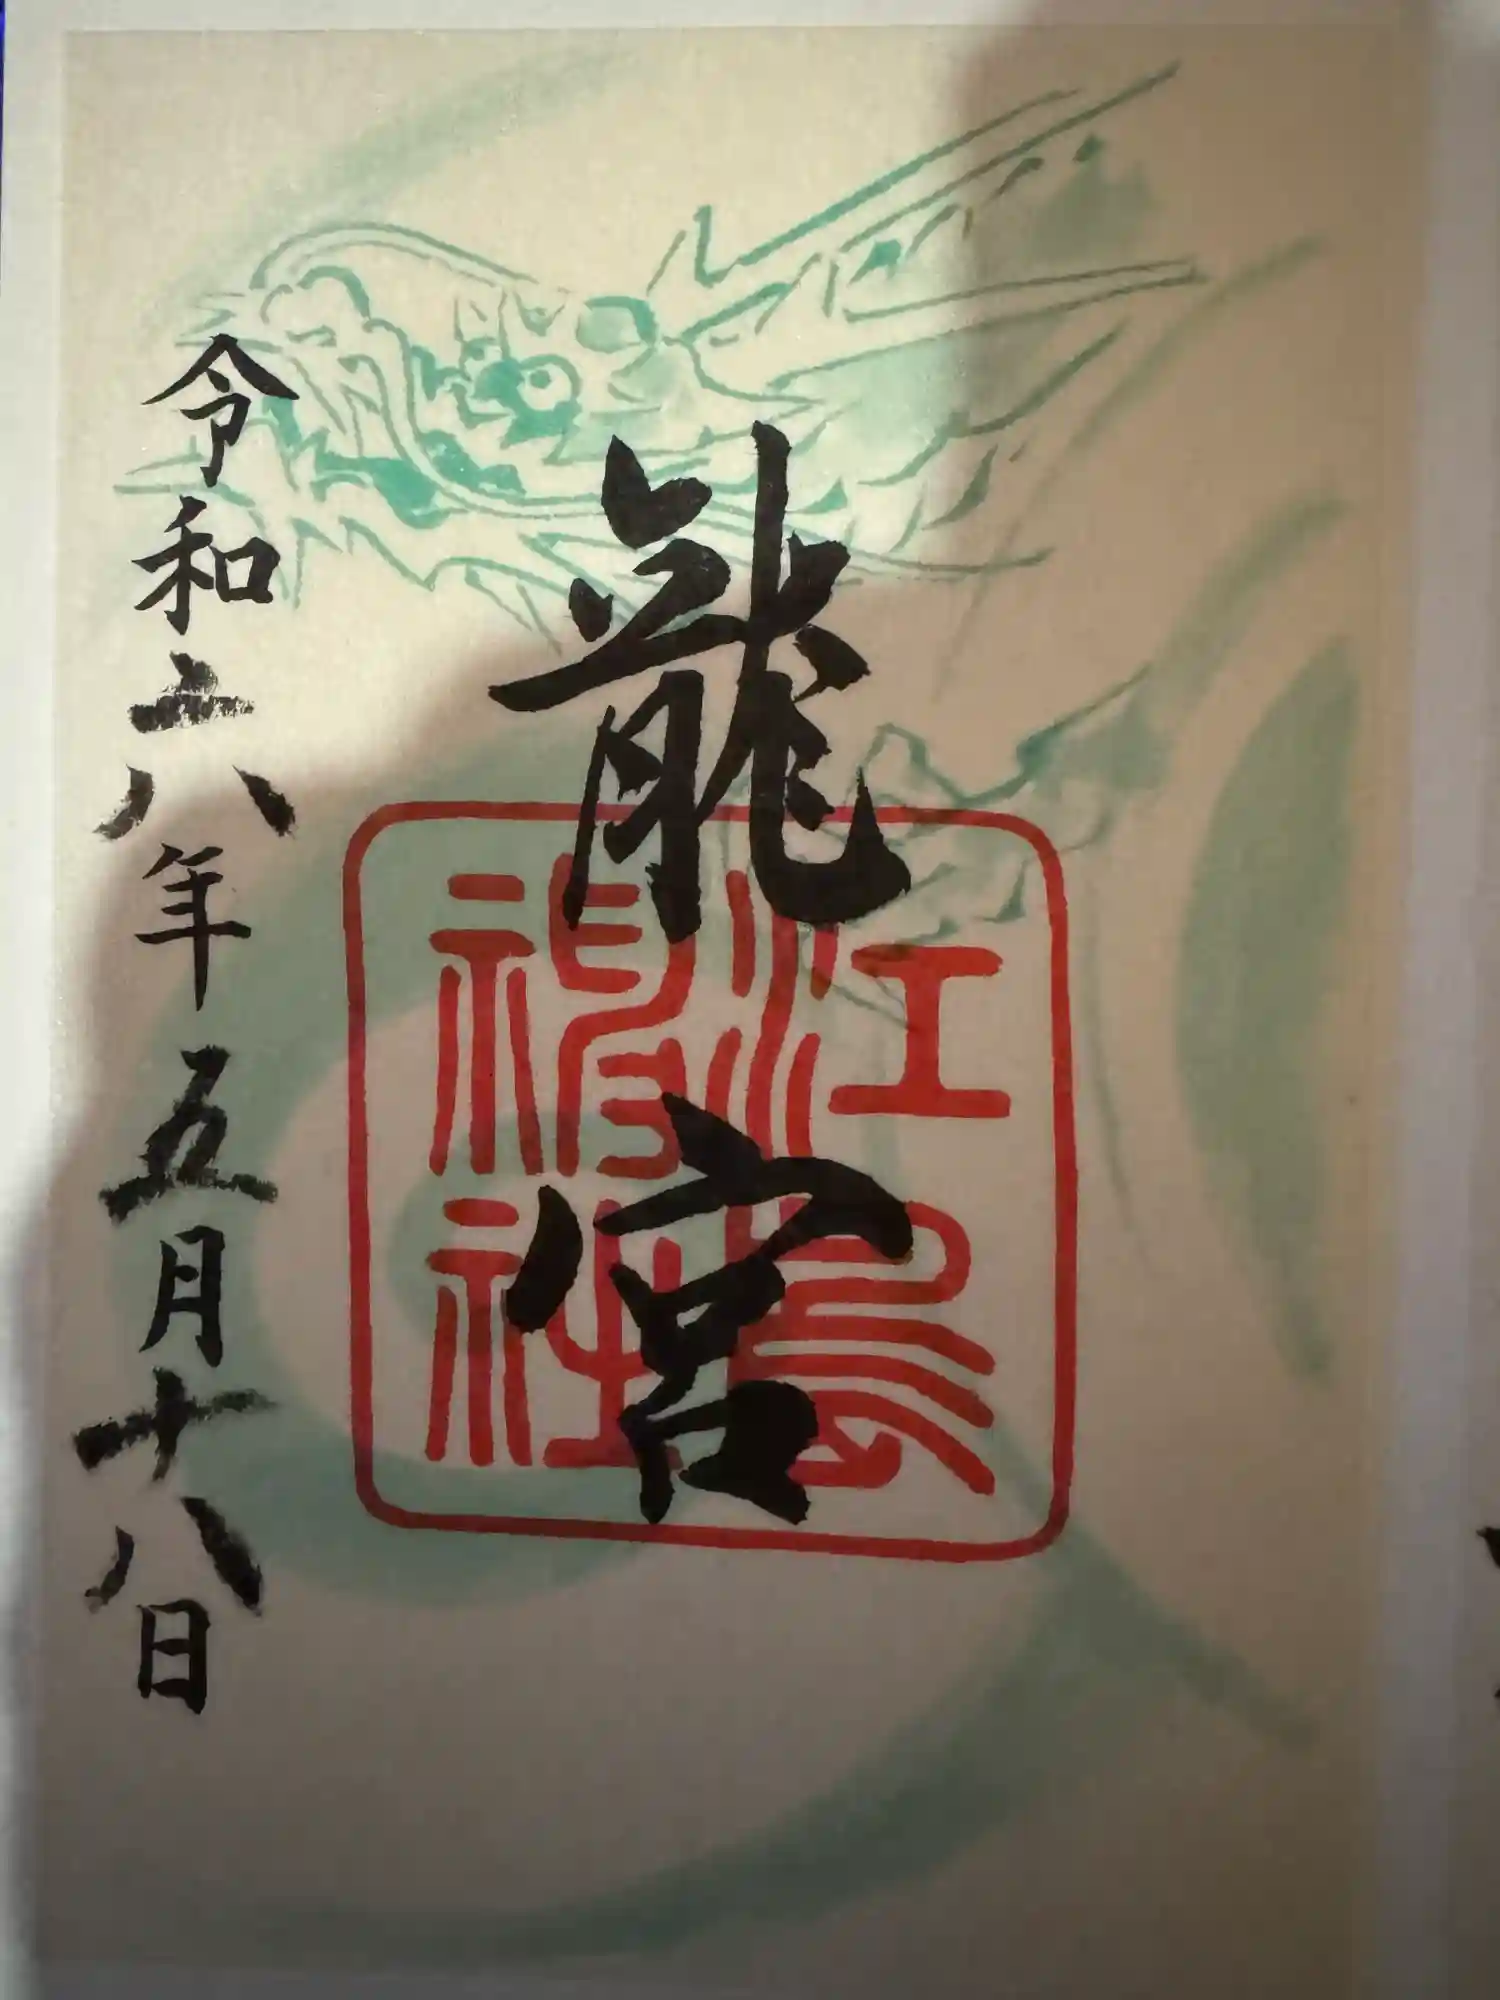 龍宮
江島神社
令和六年五月十八日